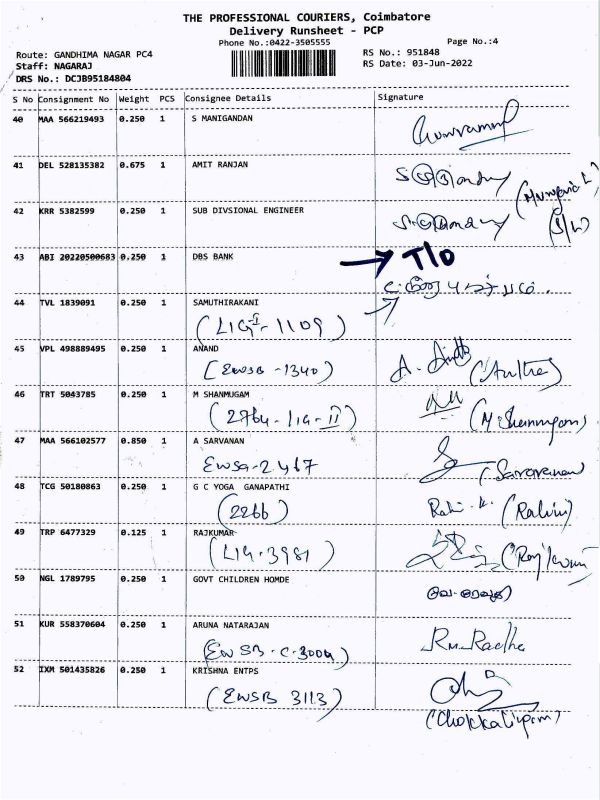 THE PROFESSIONAL COURIERS, Coimbatore
Delivery Runsheet - PCP
Phone No.:0422-3505555 Page No.:4
Route: GANDHIMA NAGAR PC4 RS No.: 951848
Staff: NAGARAJ RS Date: 03-Jun-2022
DRS No.: DCJB95184804
S No Consignment No Weight PCS Consignee Details Signature
40 MAA 566219493 0.250 1 S MANIGANDAN
41 DEL 528135382 0.675 1 AMIT RANJAN
42 KRR 5382599 0.250 1 SUB DIVSIONAL ENGINEER
43 ABI 20220500683 0.250 1 DBS BANK T/O
44 TVL 1839091 0.250 1 SAMUTHIRAKANI
(LIG-I-1109)
45 VPL 498889495 0.250 1 ANAND
(EWSB-1340)
46 TRT 5043785 0.250 1 M SHANMUGAM
(2764-LIG-II)
47 MAA 566102577 0.850 1 A SARVANAN
EWSB-2467 (Saravanan
48 TCG 50180863 0.250 1 G C YOGA GANAPATHI
(2266)
49 TRP 6477329 0.125 1 RAJKUMAR
(LIG-3981) (Rajkumar)
50 NGL 1789795 0.250 1 GOVT CHILDREN HOMDE
51 KUR 558370604 0.250 1 ARUNA NATARAJAN
(EWSB-C-3009) RM.Radha
52 IXM 501435826 0.250 1 KRISHNA ENTPS
(EWSB 3113)
(Chokkalingam)